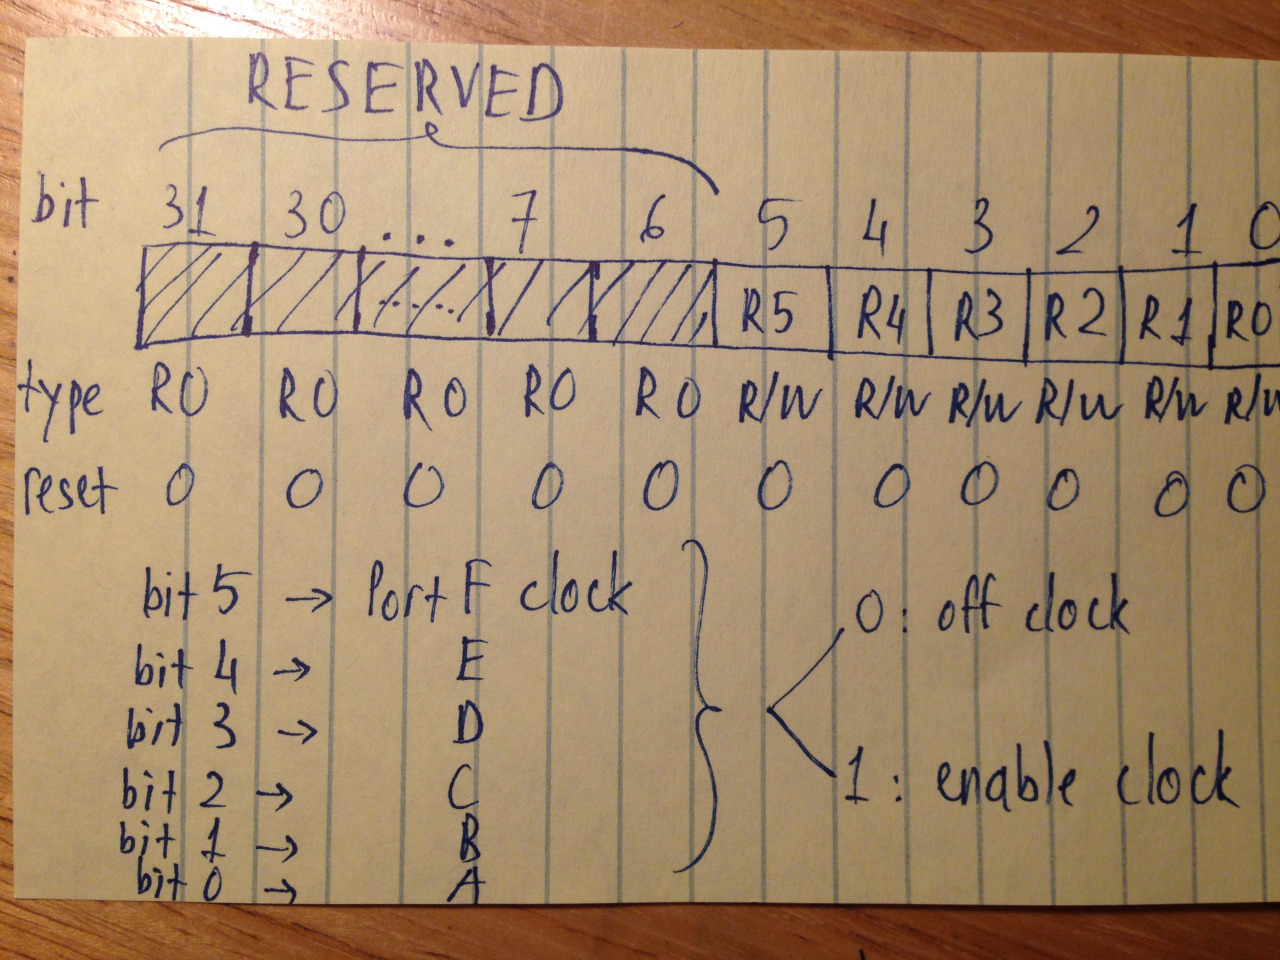 RESERVED
bit 31 30 ... 7 6 5 4 3 2 1 0
..... R5 R4 R3 R2 R1 R0
type RO RO RO RO RO R/W R/W R/W R/W R/W R/W
reset 0 0 0 0 0 0 0 0 0 0 0
bit 5 → Port F clock
bit 4 → E
bit 3 → D
bit 2 → C
bit 1 → B
bit 0 → A
0: off clock
1: enable clock